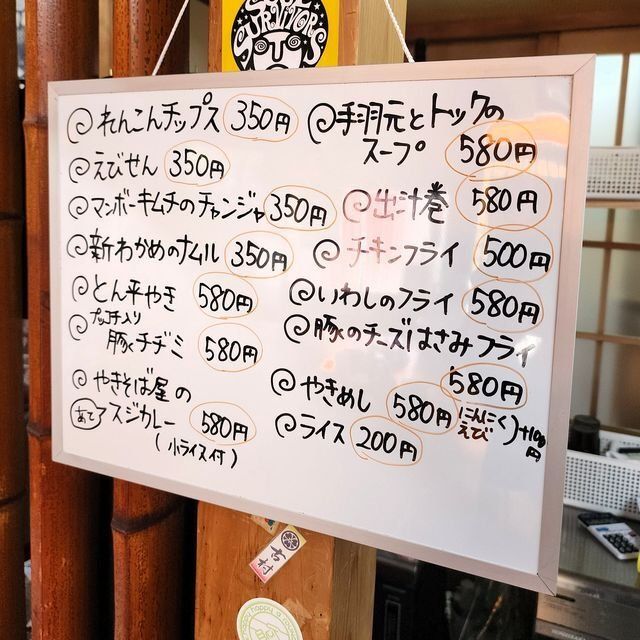 SURVIVORS
れんこんチップス 350円
えびせん 350円
マンボーキムチのチャンジャ 350円
新わかめのナムル 350円
とん平やき 580円
プッチ入り
豚チヂミ 580円
やきそば屋の
あて スジカレー 580円
(小ライス付)
手羽元とトックの
スープ 580円
出汁巻 580円
チキンフライ 500円
いわしのフライ 580円
豚のチーズはさみフライ
580円
やきめし 580円
にんにく
えび
+100円
ライス 200円
吉村